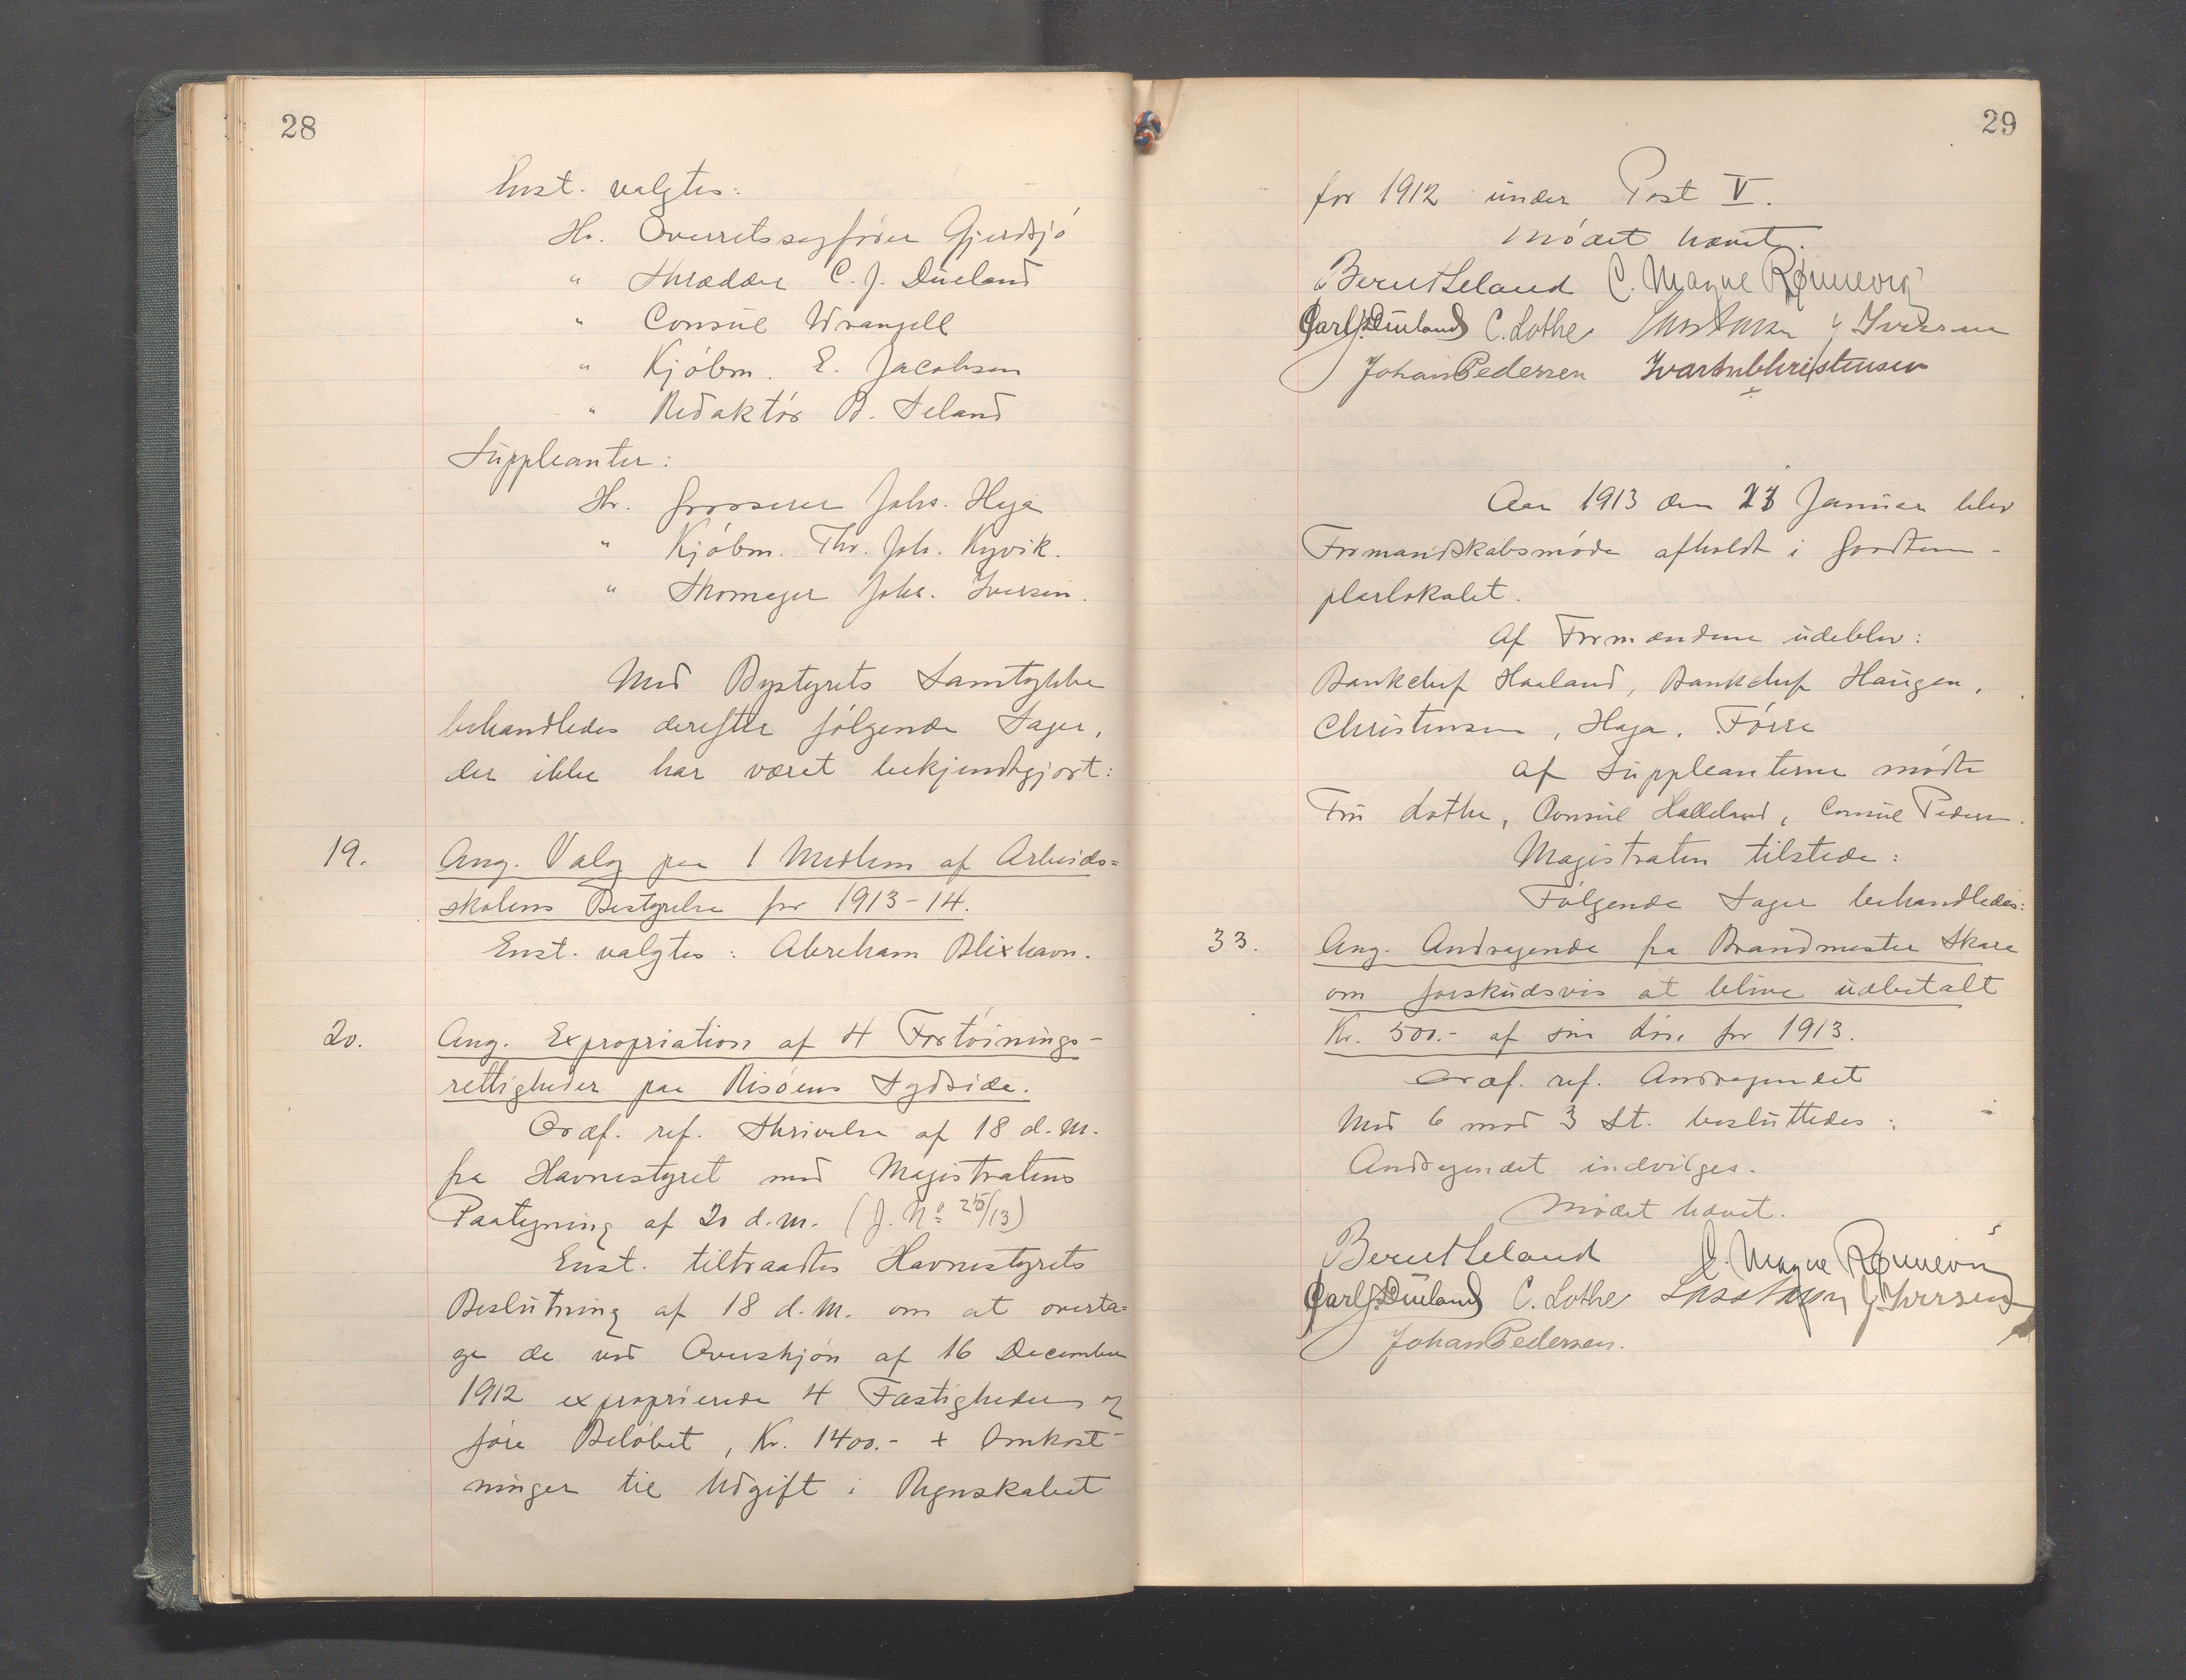 28
Enst. valgtes:
Hr. Overretssagfører Gjerdsjø
" Skrædder C. J. Dueland
" Consul Wrangell
" Kjøbm. E. Jacobsen
" Redaktør B. Seland
Suppleanter:
Hr. Grosserer Johs. Haga
" Kjøbm. Thv. Joh. Kyvik.
" Skomager Johs. Iversen.
Med Bystyrets Samtykke
behandledes derefter følgende Sager,
der ikke har været bekjendtgjort:
19.
Ang. Valg paa 1 Medlem af Arbeids=
skolens Bestyrelse for 1913-14.
Enst. valgtes: Abraham Blixhavn.
20.
Ang. Expropriation af 4 Fortøinings-
rettigheder paa Risøens Sydside.
Ordf. ref. Skrivelse af 18 d.M.
fra Havnestyret med Magistratens
Paategning af 20 d.M. (J. No 25/13)
Enst. tiltraadtes Havnestyrets
Beslutning af 18 d.M. om at overta=
ge de ved Overskjøn af 16 December
1912 exproprierede 4 Fastigheder og
føre Beløbet, Kr. 1400.- + Omkost-
ninger til Udgift i Regnskabet
29
for 1912 under Post V.
Mødet hævet.
Bernt Seland C. Magne Rønnevig
Carl J. Dueland C. Lothe J. Iversen
Johan Pedersen Ivar Christensen
Aar 1913 den 23 Januar blev
Formandskabsmøde afholdt i Goodtem-
plarlokalet.
Af Formændene udeblev:
Bankchef Haaland, Bankchef Haugen,
Christensen, Haga, Førre
Af Suppleanterne mødte
Fru Lothe, Consul Halleland, Consul Pedersen.
Magistraten tilstede:
Følgende Sager behandledes:
33.
Ang. Andragende fra Brandmester Skare
om forskudsvis at blive udbetalt
Kr. 500.- af sin Løn for 1913.
Ordf. ref. Andragendet
Med 6 mod 3 St. besluttedes:
Andragendet indvilges.
Mødet hævet.
Bernt Seland C. Magne Rønnevig
Carl J. Dueland C. Lothe J. Iversen
Johan Pedersen.